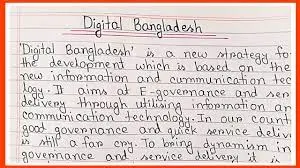 Digital Bangladesh
'Digital Bangladesh' is a new strategy for
the development which is based on the
new information and communication techno
logy. It aims at E-governance and serv
delivery through utilising information an
communication technology. In our count
good governance and quick service deliv
is still a far cry. To bring dynamism in
governance and service delivery it is